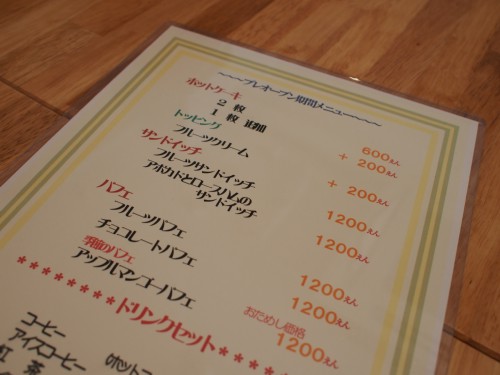 ～～～プレオープン期間メニュー～～～
ホットケーキ
2 枚 600えん
1 枚 追加 + 200えん
トッピング
フルーツクリーム + 200えん
サンドイッチ
フルーツサンドイッチ 1200えん
アボカドとロースハムの
サンドイッチ 1200えん
パフェ
フルーツパフェ 1200えん
チョコレートパフェ 1200えん
季節のパフェ おためし価格
アップルマンゴーパフェ 1200えん
********ドリンクセット****
コーヒー (ホット
アイスコーヒー
紅 茶